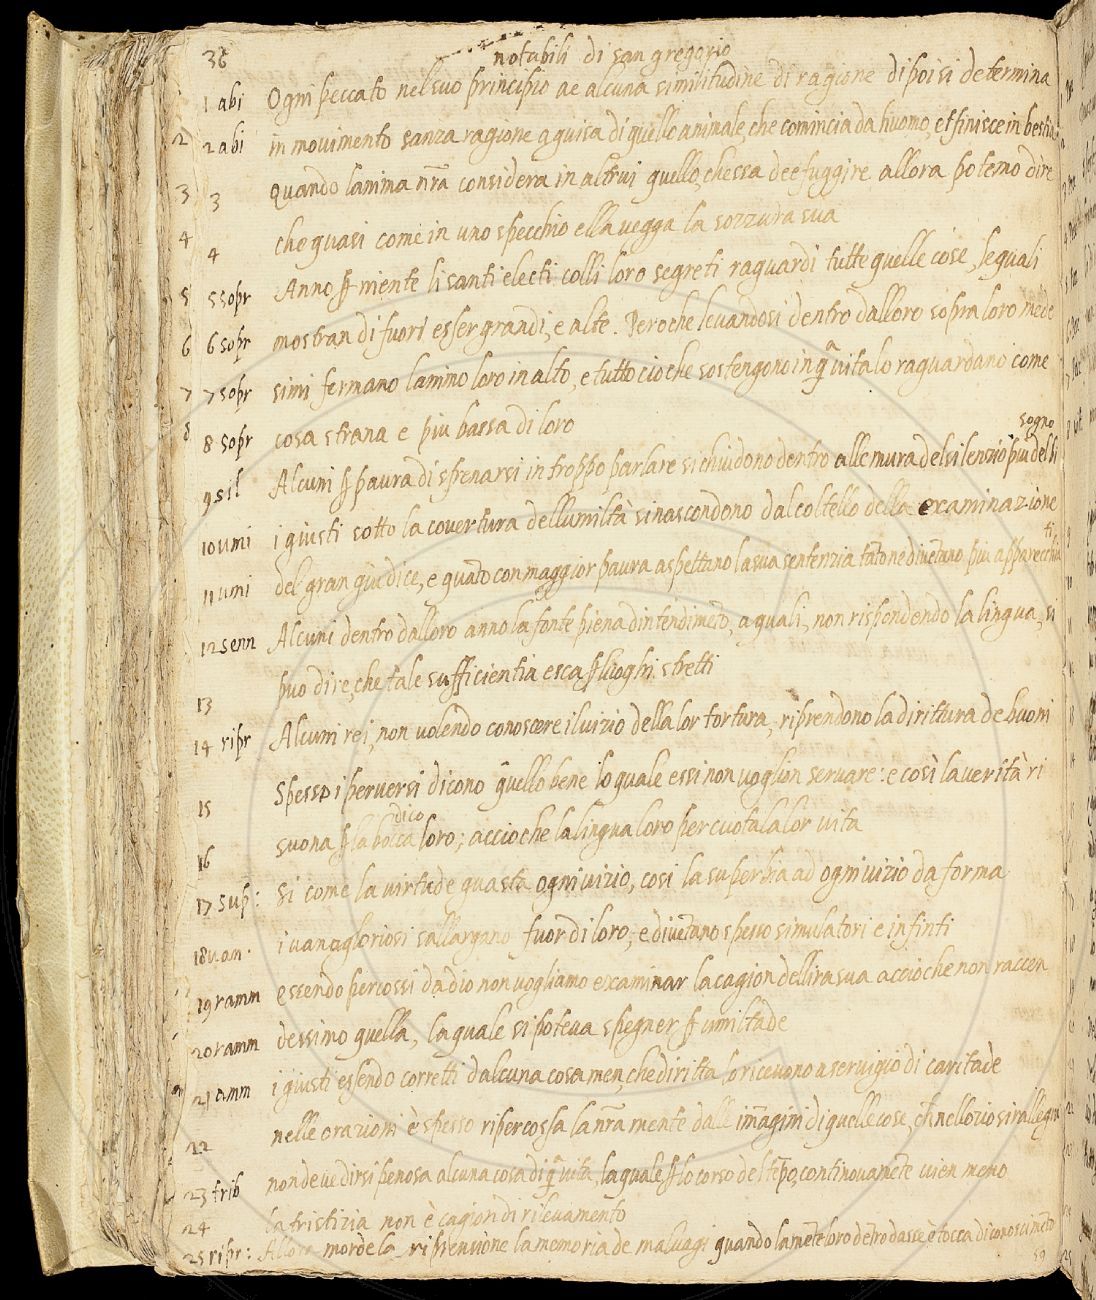 38
notabili di san gregorio
1 abi Ogni peccato nel suo principio ae alcuna similitudine di ragione dipoi si determina
2 2 abi in movimento sanza ragione a guisa di quelle animale che comincia da huomo, et finisce in bestia
3 3 Quando lanima nr̃a considera in altrui quello, chessa dee fuggire allora potemo dire
4 4 che quasi come in uno specchio ella uegga la sozzura sua
5 5 sopr Anno ꝑ niente li santi electi colli loro segreti raguardi tutte quelle cose, lequali
6 6 sopr mostran di fuori esser grandi, e alte. Peroche levandosi dentro dalloro sopra loro mede
7 7 sopr simi fermano lanimo loro in alto, e tutto cio che sostengono in q̃ vita lo raguardano come
8 8 sopr cosa strana e piu bassa di loro
sogno
9 sil Alcuni ꝑ paura di sfrenarsi in troppo parlare si chiudono dentro alle mura del silenzio piu del bi
10 umi i giusti sotto la covertura dellumiltà si nascondono dal coltello della examinazione
ti
11 umi del gran giudice, e quãto con maggior paura aspettano la sua sentenzia tãto ne divẽtano piu apparecchia
12 senn Alcuni dentro dalloro anno la fonte piena dintendimẽto, a quali, non rispondendo la lingua, si
13 puo dire, che tale sufficientia esca ꝑ luoghi stretti
14 ripr Alcuni rei, non volendo conoscere il uizio della lor tortura, riprendono la dirittura de buoni
15 Spesso i perversi dicono q̃llo bene lo quale essi non voglion servare: e così la verità ri
dico
16 suona ꝑ la bocca loro; accioche la lingua loro percuota la lor vita
17 sup: Si come la virtude guasta ogni vizio, cosi la superbia ad ogni vizio da forma
18 van. i vanagloriosi sallargano fuor di loro, e divẽtano spesso simulatori e infinti
19 ramm essendo percossi da dio non vogliamo examinar la cagion dellira sua accioche non raccen
20 ramm dessimo quella, la quale si poteva spegner ꝑ umiltade
21 amm i giusti essendo corretti dalcuna cosa men, che diritta lo ricevono a servigio di caritade
22 nelle orazioni è spesso ripercossa la nr̃a mente dalle im̃agini di quelle cose, ch̃ nellozio si rallegra
23 trib non deve dirsi penosa alcuna cosa di q̃ vita, la quale ꝑ lo corso del tẽpo, continovamẽte vien meno
24 la tristizia non è cagion di rilevamento
25 ripr: Allora morde la riprensione la memoria de malvagi quando la mẽte loro dẽtro dasse è tocca di conoscimẽto
59